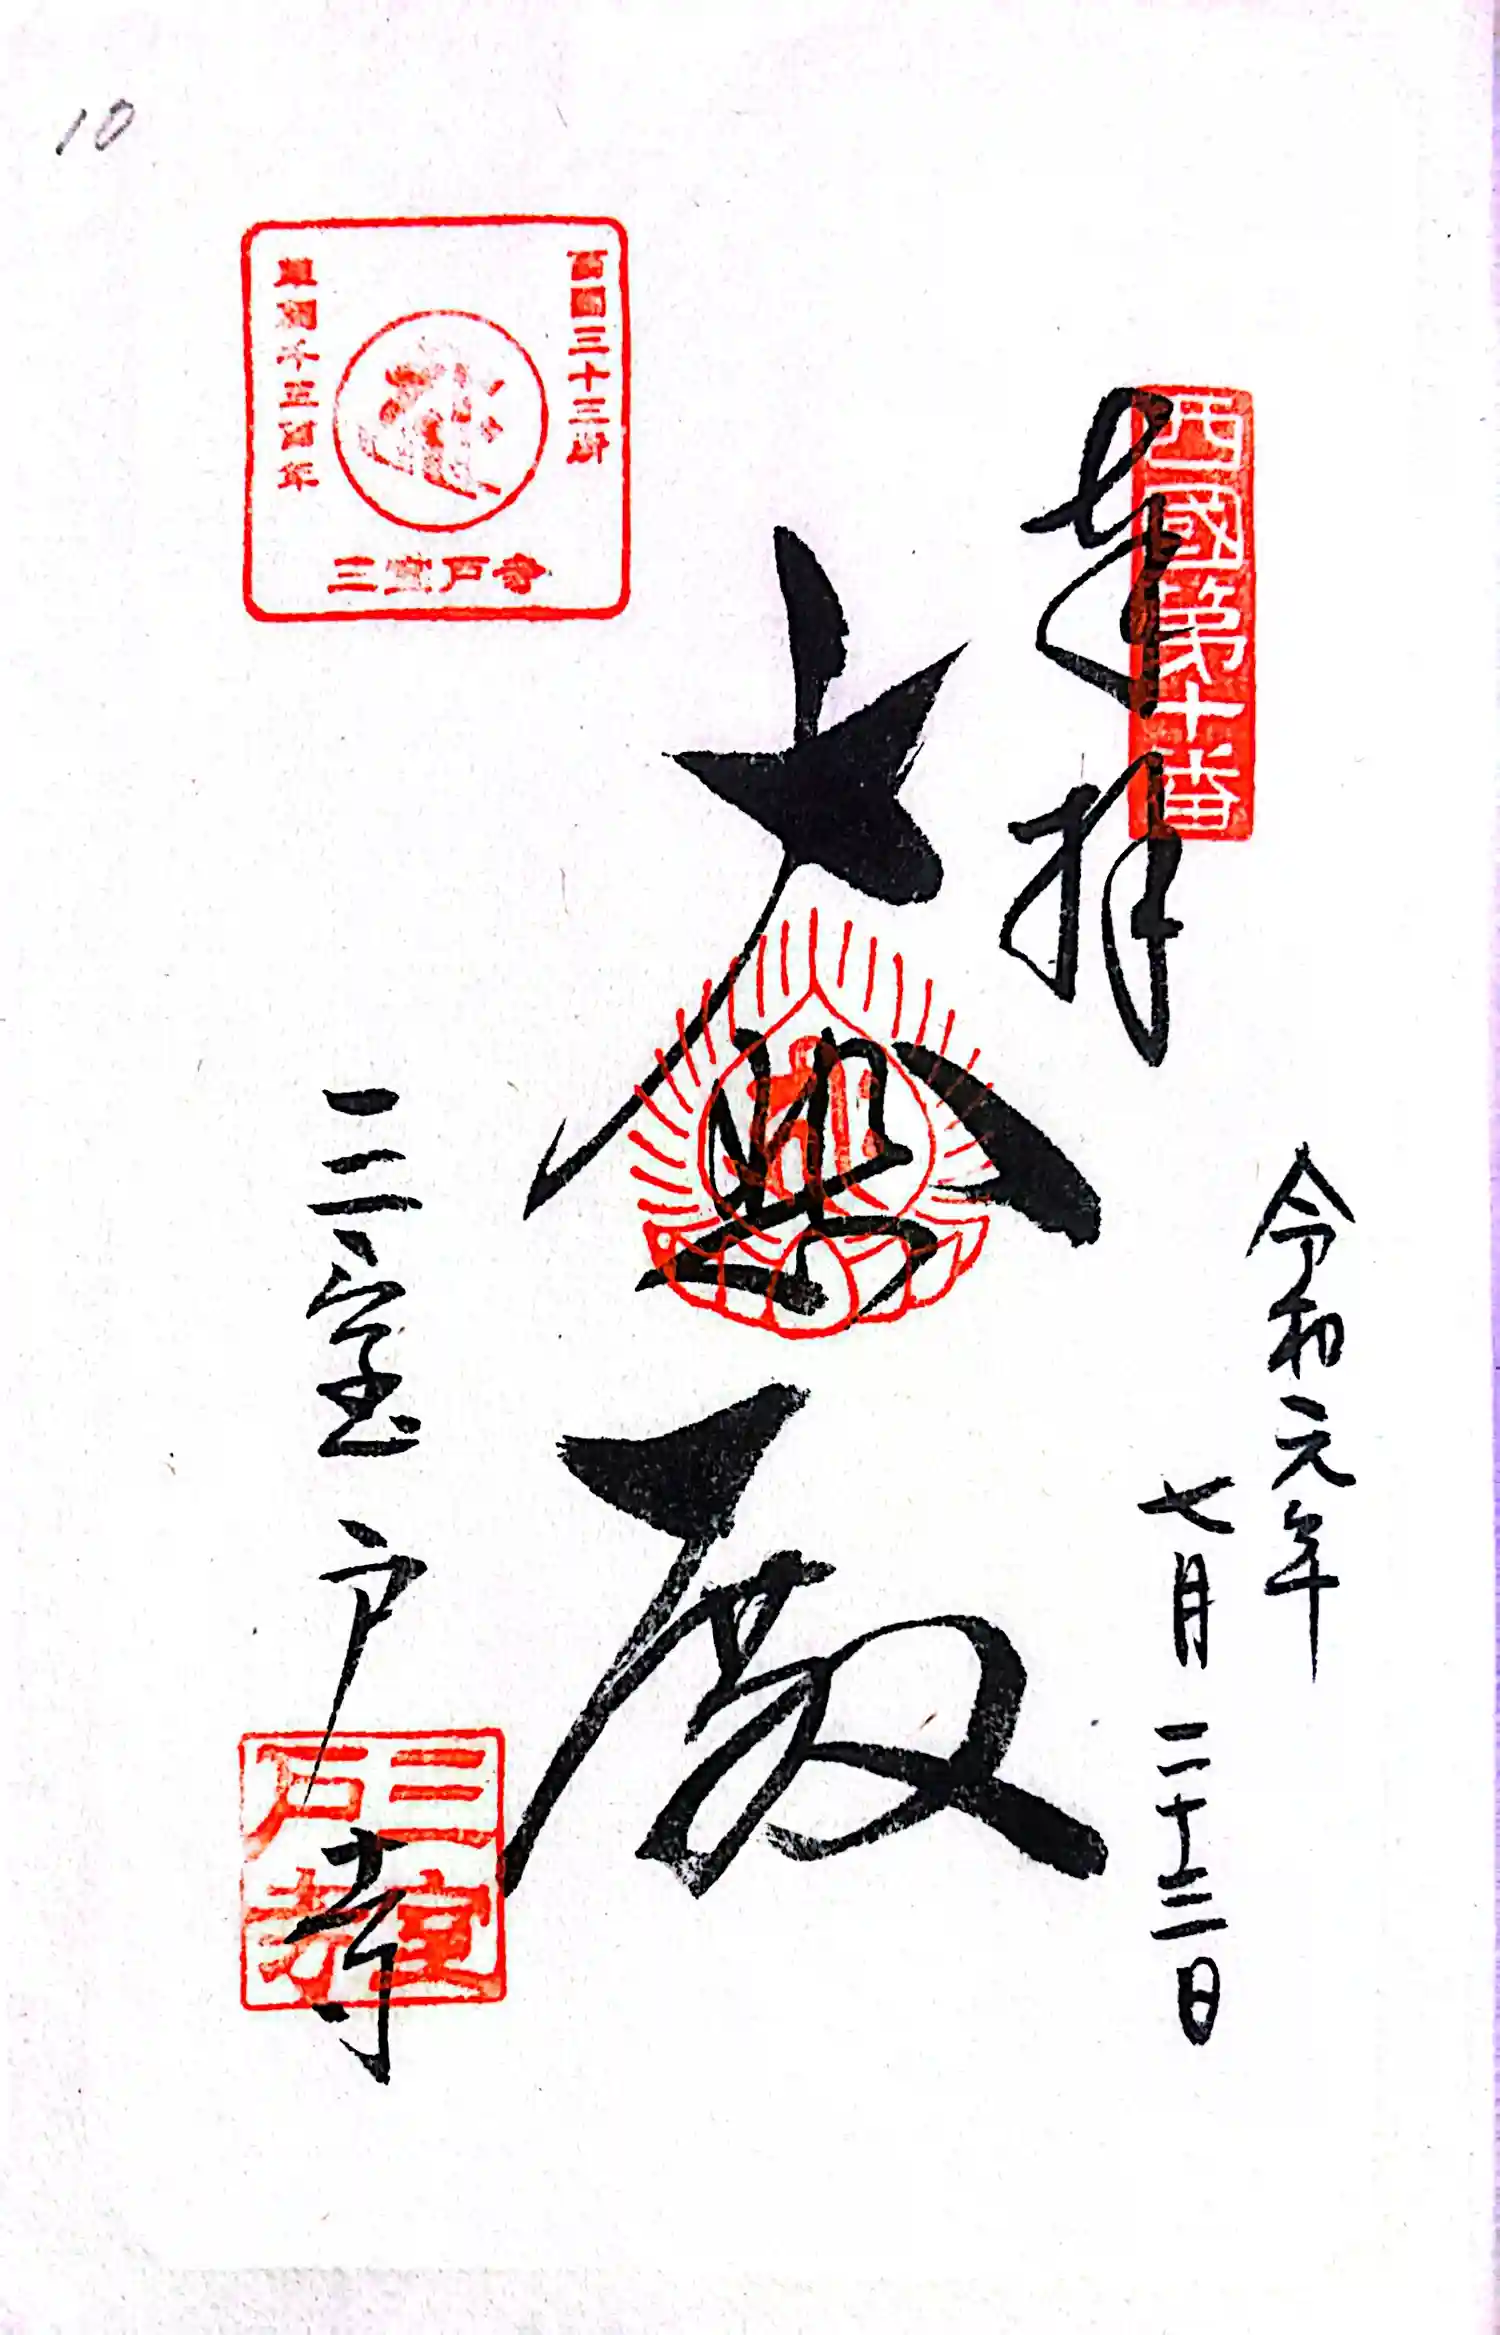 10
西國第十番
奉拝
令和元年
七月二十三日
大悲殿
西国三十三所
草創千三百年
三室戸寺
三室戸寺
三室戸寺